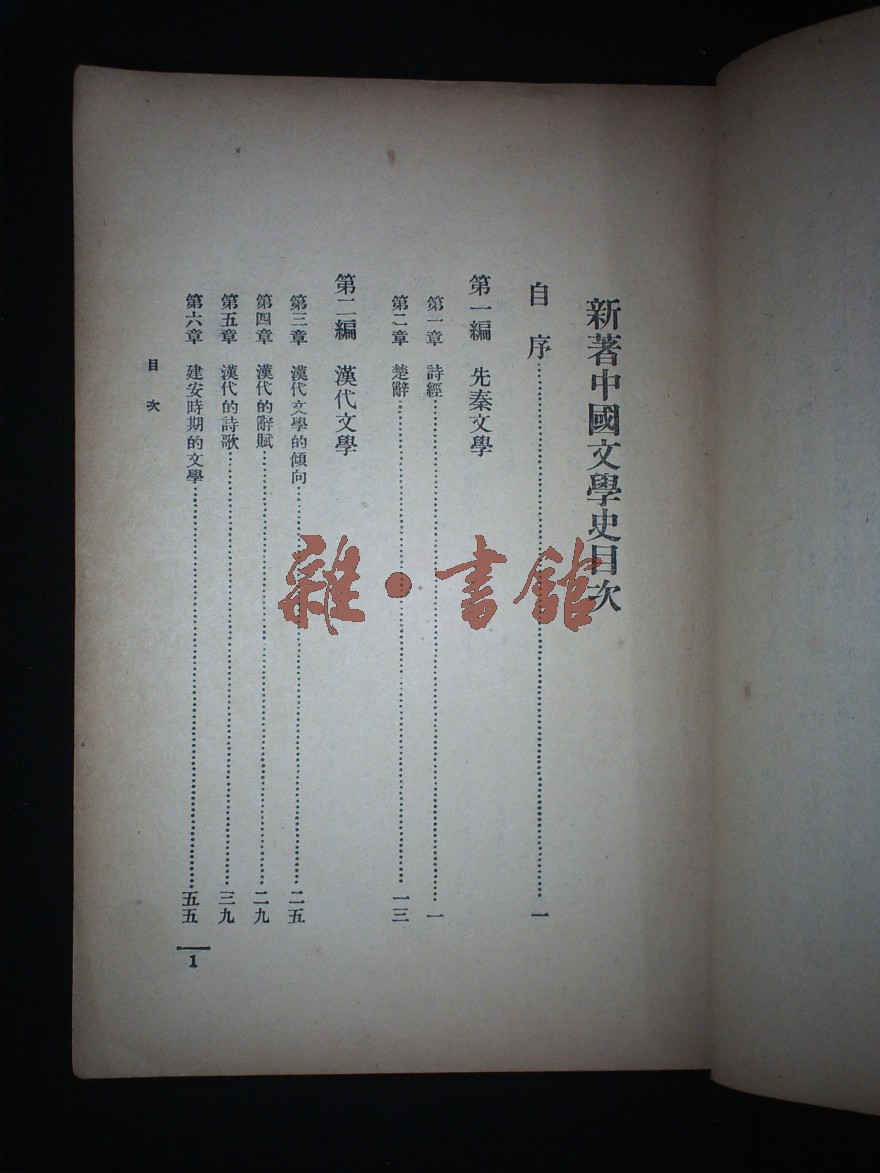 新著中國文學史目次
自序……一
第一編 先秦文學
第一章 詩經……一
第二章 楚辭……一三
第二編 漢代文學
第三章 漢代文學的傾向……二五
第四章 漢代的辭賦……二九
第五章 漢代的詩歌……三九
第六章 建安時期的文學……五五
目次
1
雜·書館